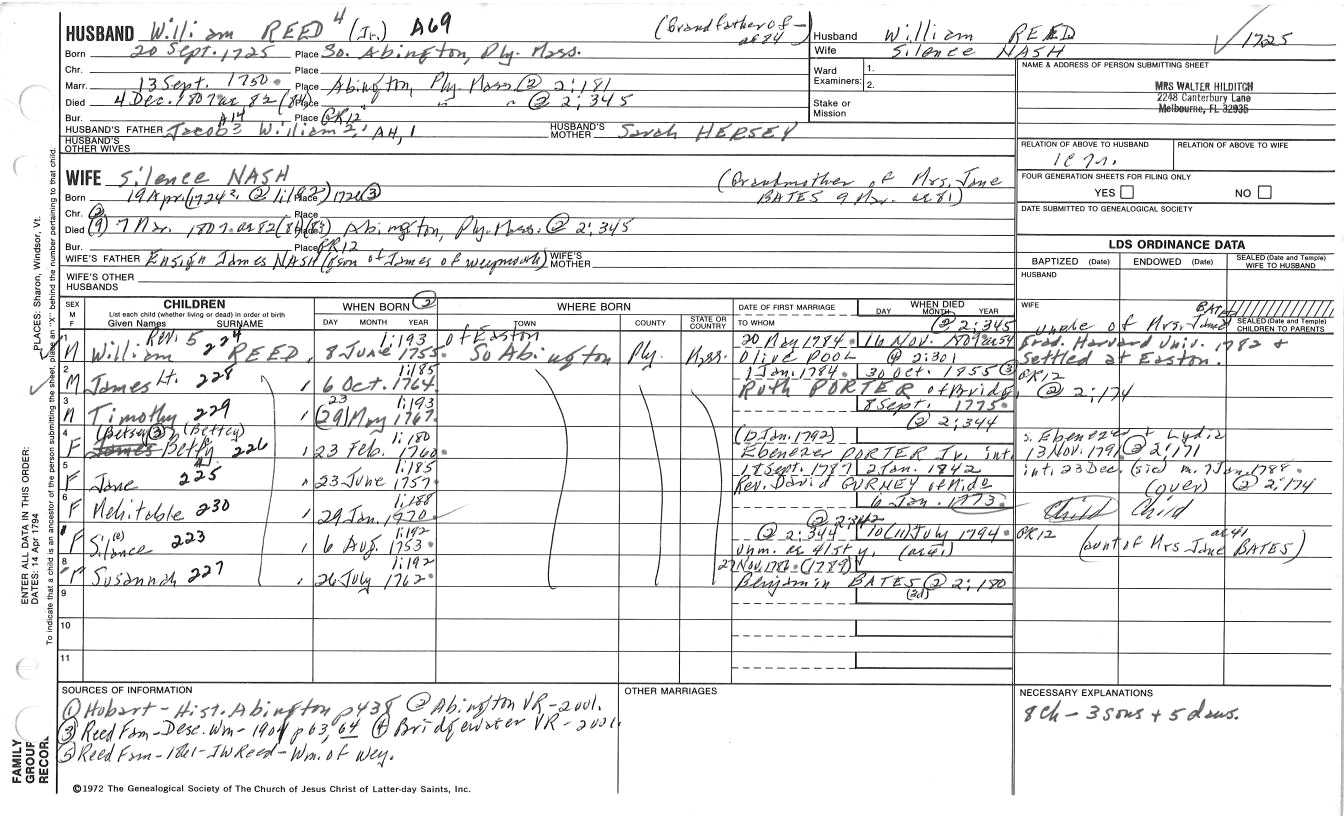 HUSBAND William REED 4 (Jr.) A69 (Grandfather of - ae 84)
Born 20 Sept. 1725 Place So. Abington, Ply. Mass.
Chr. Place
Marr. 13 Sept. 1750 Place Abington, Ply. Mass. (2) 2:181
Died 4 Dec. 1807 ae 82 (84) Place " " (2) 2:345
Bur. A14 Place PR12
HUSBAND'S FATHER Jacob 3 William 2, A4, 1 HUSBAND'S MOTHER Sarah HERSEY
HUSBAND'S OTHER WIVES
Husband William REED
Wife Silence NASH
Ward Examiners: 1. 2.
Stake or Mission
✓ 1725
NAME & ADDRESS OF PERSON SUBMITTING SHEET
MRS WALTER HILDITCH
2248 Canterbury Lane
Melbourne, FL 32935
RELATION OF ABOVE TO HUSBAND RELATION OF ABOVE TO WIFE
FOUR GENERATION SHEETS FOR FILING ONLY
YES NO
DATE SUBMITTED TO GENEALOGICAL SOCIETY
WIFE Silence NASH (Grandmother of Mrs. Jane
Born 19 Apr. (1724 Place 1726 (3) BATES 9 Mar. ae 81)
Chr. (2) Place
Died (9) 7 Mar. 1807 ae 82 Place Abington, Ply. Mass. (2) 2:345
Bur. Place PR12
WIFE'S FATHER Ensign James NASH (son of James of Weymouth) WIFE'S MOTHER
WIFE'S OTHER HUSBANDS
LDS ORDINANCE DATA
BAPTIZED (Date) ENDOWED (Date) SEALED (Date and Temple) WIFE TO HUSBAND
HUSBAND
WIFE
SEALED (Date and Temple) CHILDREN TO PARENTS
SEX M F
CHILDREN
List each child (whether living or dead) in order of birth
Given Names SURNAME
WHEN BORN (2)
DAY MONTH YEAR
WHERE BORN
TOWN COUNTY STATE OR COUNTRY
DATE OF FIRST MARRIAGE
TO WHOM
WHEN DIED
DAY MONTH YEAR
1 M Rev. 5 William 224 REED 1:193 8 June 1755 of Easton So Abington Ply. Mass. 20 May 1784 Olive POOL (2) 2:301 16 Nov. (2) 2:345 uncle of Mrs. Jane BATES Grad. Harvard Univ. 1782 + Settled at Easton.
2 M James Lt. 228 1:185 6 Oct. 1764 1 Jan. 1784 Ruth PORTER of Bridg. 30 Oct. 1855 (3) PR12 (2) 2:174
3 M Timothy 229 1:193 23 (29) May 1767 8 Sept. 1775 (2) 2:344
4 F (Betsey (3)) (Bettey) James Betty 226 1:180 23 Feb. 1760 (12 Jan. 1792) Ebenezer PORTER Jr. int. s. Ebenezer + Lydia 13 Nov. 1791 (2) 2:171
5 F Jane 225 1:185 23 June 1757 18 Sept. 1787 Rev. David GURNEY of Mido 2 Jan. 1842 int. 23 Dec. (sic) m. 7 Jan. 1788 (over) (2) 2:174
6 F Mehitable 230 1:188 29 Jan. 1770 6 Jan. 1773 Child Child
F Sil(e)nce 223 1:192 6 Aug. 1753 (2) 2:344 unm. ae 41st y. (2) 2:342 10 (11) July 1794 PR12 ae 41 (aunt of Mrs Jane BATES)
8 F Susannah 227 1:192 26 July 1762 27 Nov. 1786 (1789) Benjamin BATES (2d) (2) 2:180
9
10
11
SOURCES OF INFORMATION
(1) Hobart - Hist. Abington p438 (2) Abington VR - 2001.
(3) Reed Fam - Desc. Wm - 1901 p 63, 64 (4) Bridgewater VR - 2001.
(5) Reed Fam - 1861 - JW Reed - Wm. of Wey.
OTHER MARRIAGES
NECESSARY EXPLANATIONS
8 Ch - 3 sons + 5 daus.
©1972 The Genealogical Society of The Church of Jesus Christ of Latter-day Saints, Inc.
FAMILY GROUP RECORD
ENTER ALL DATA IN THIS ORDER:
DATES: 14 Apr 1794
PLACES: Sharon, Windsor, Vt.
To indicate that a child is an ancestor of the person submitting the sheet, place an "X" behind the number pertaining to that child.